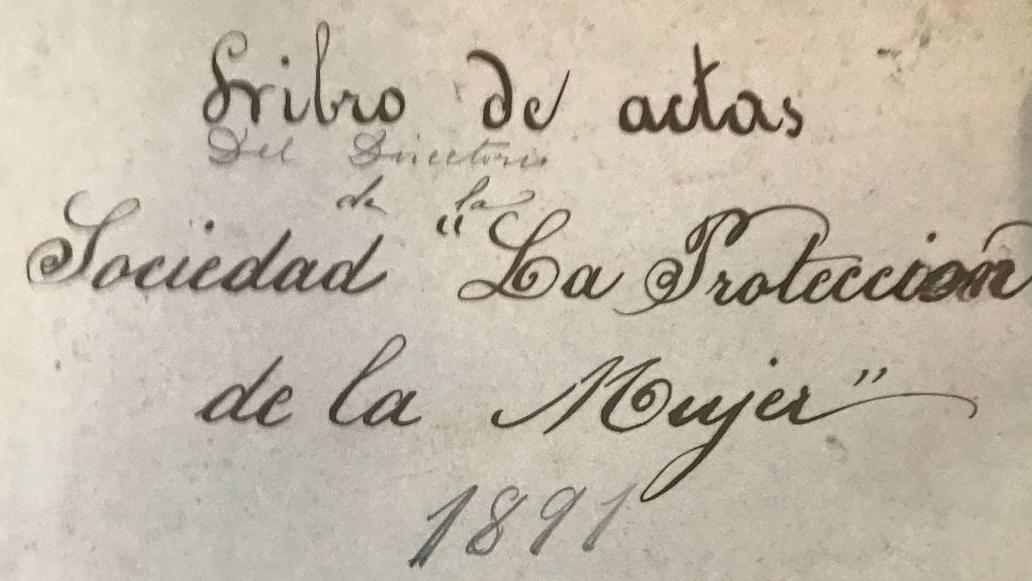 Libro de actas
Del Directorio
de la
Sociedad "La Proteccion
de la Mujer"
1891